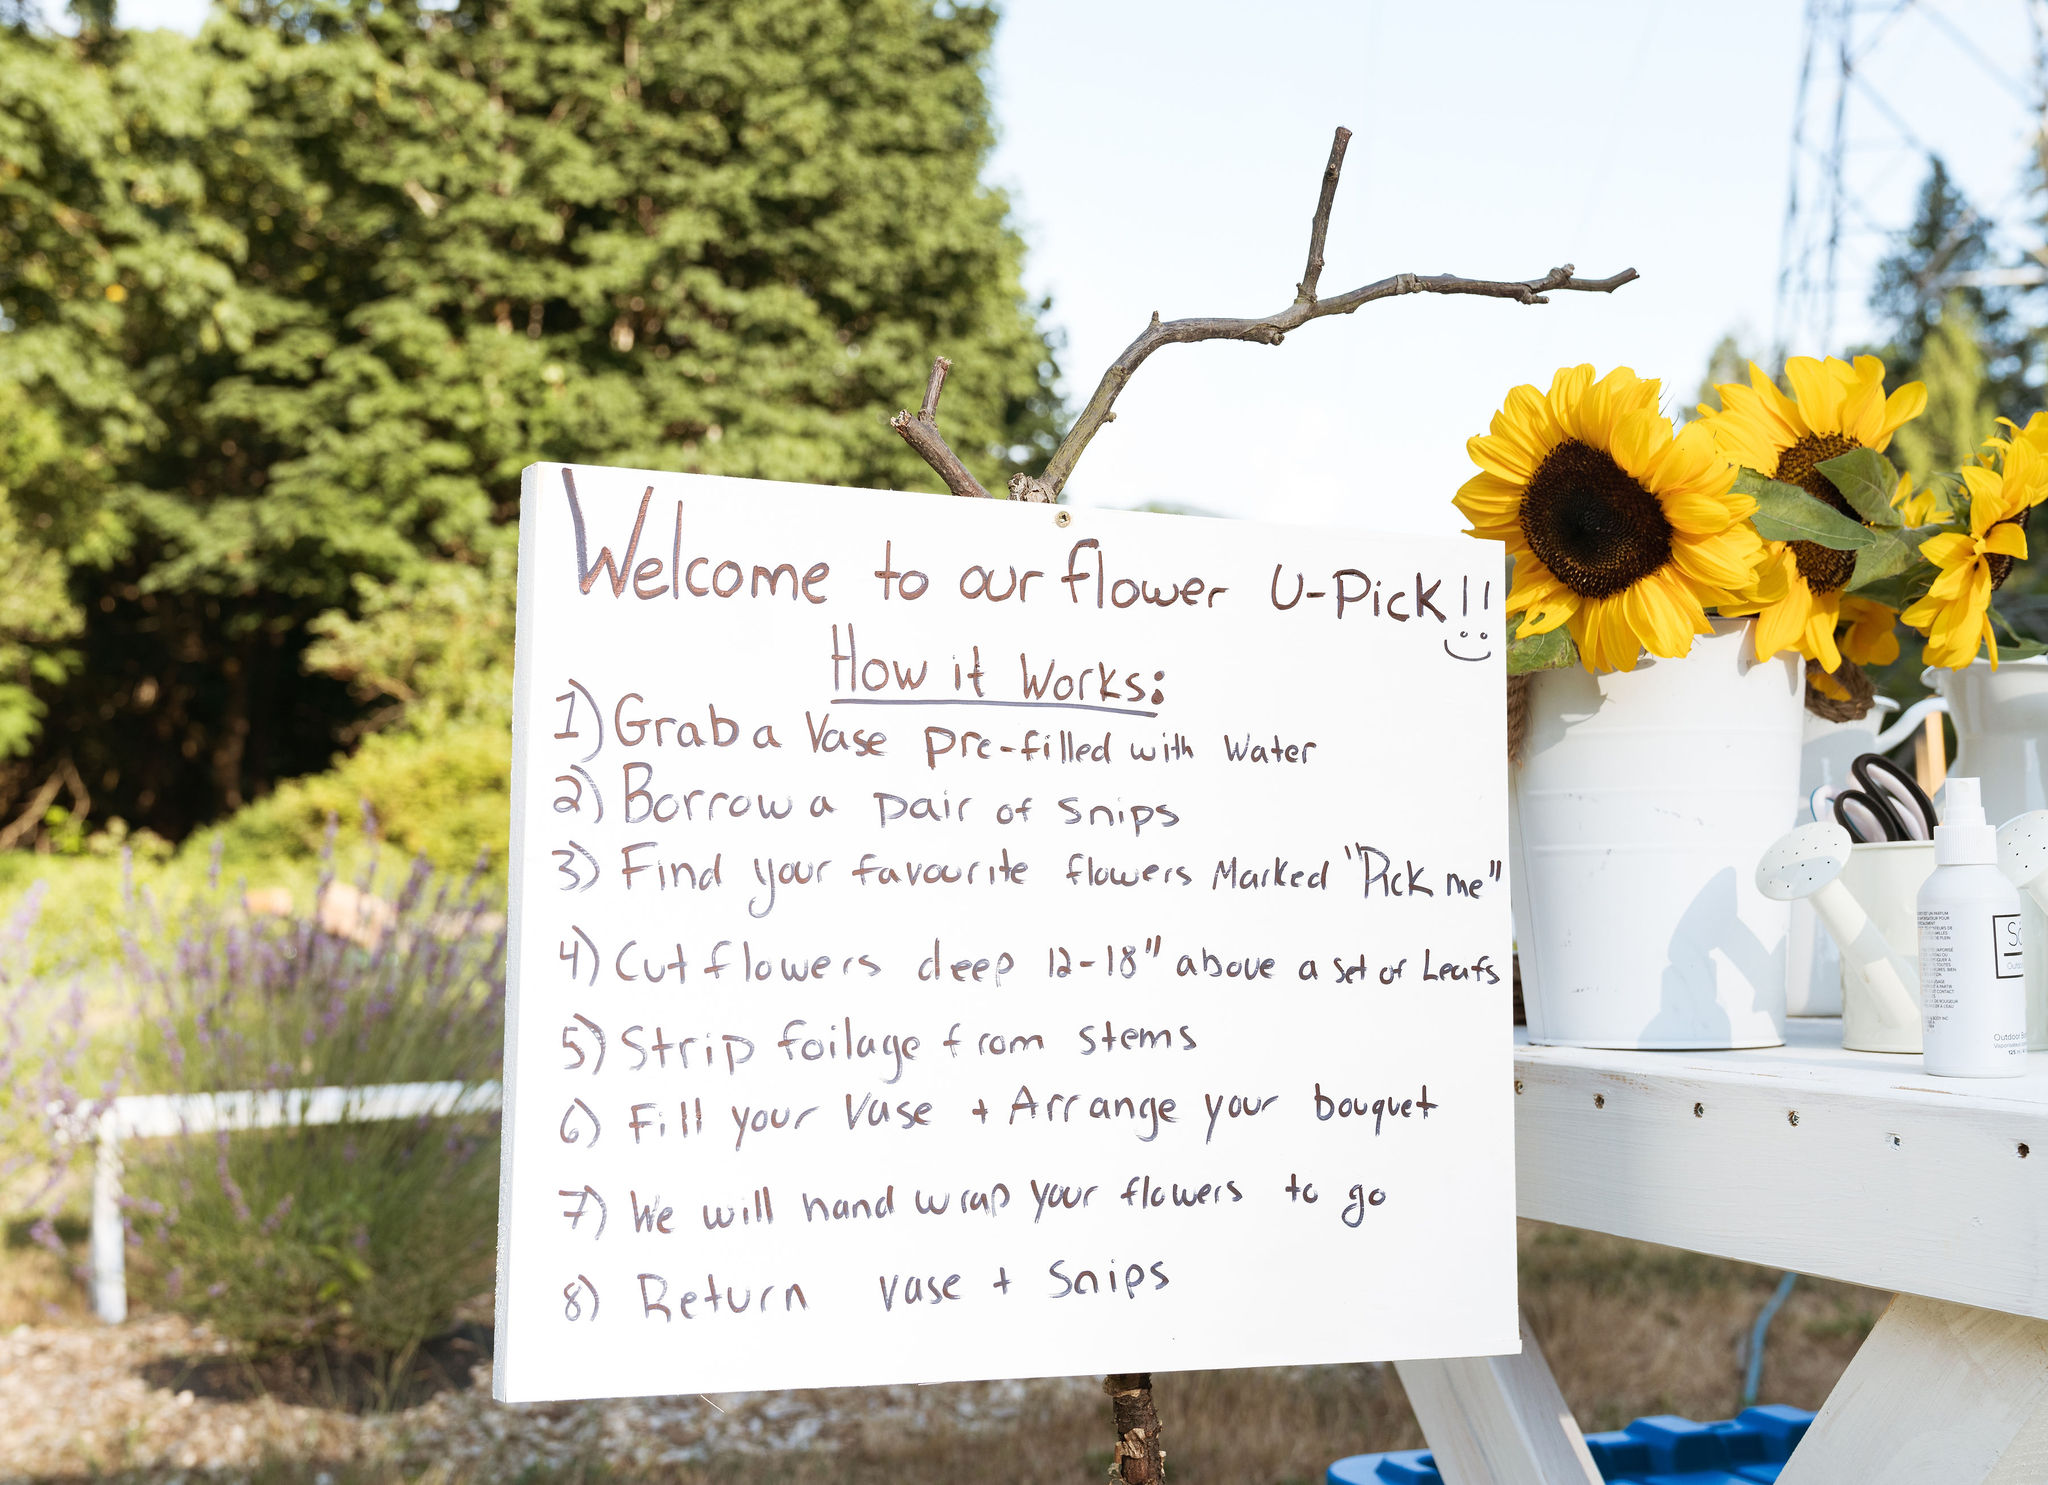 Welcome to our flower U-Pick!!
How it Works:
1) Grab a Vase pre-filled with Water
2) Borrow a pair of snips
3) Find your favourite flowers Marked "Pick me"
4) Cut flowers deep 12-18" above a set of Leafs
5) Strip foilage from stems
6) Fill your Vase + Arrange your bouquet
7) We will hand wrap your flowers to go
8) Return vase + Snips
Outdoor